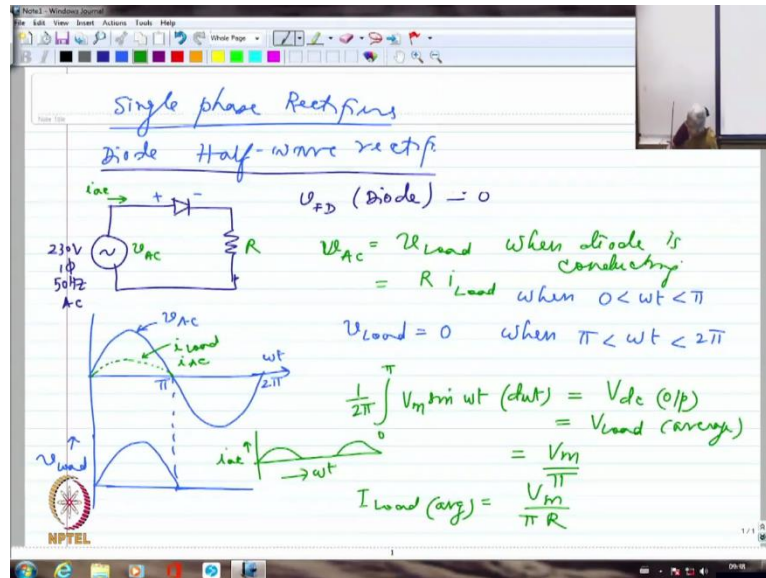 Note1 - Windows Journal
File Edit View Insert Actions Tools Help
Whole Page
Note Title
Single phase Rectifiers
Diode Half-wave rectif
iac
+ -
230V
1φ
50Hz
AC
vAC
R
+
vFD (Diode) = 0
vAC = vLoad when diode is conducting
= R iLoad when 0 < ωt < π
vLoad = 0 when π < ωt < 2π
vAC
iLoad
iAC
ωt
π 2π
vLoad
iac
→ ωt
1/2π ∫₀^π Vm sin ωt (dωt) = Vdc (o/p)
= VLoad (average)
= Vm/π
ILoad (avg) = Vm/πR
NPTEL
1/1
1
09:18